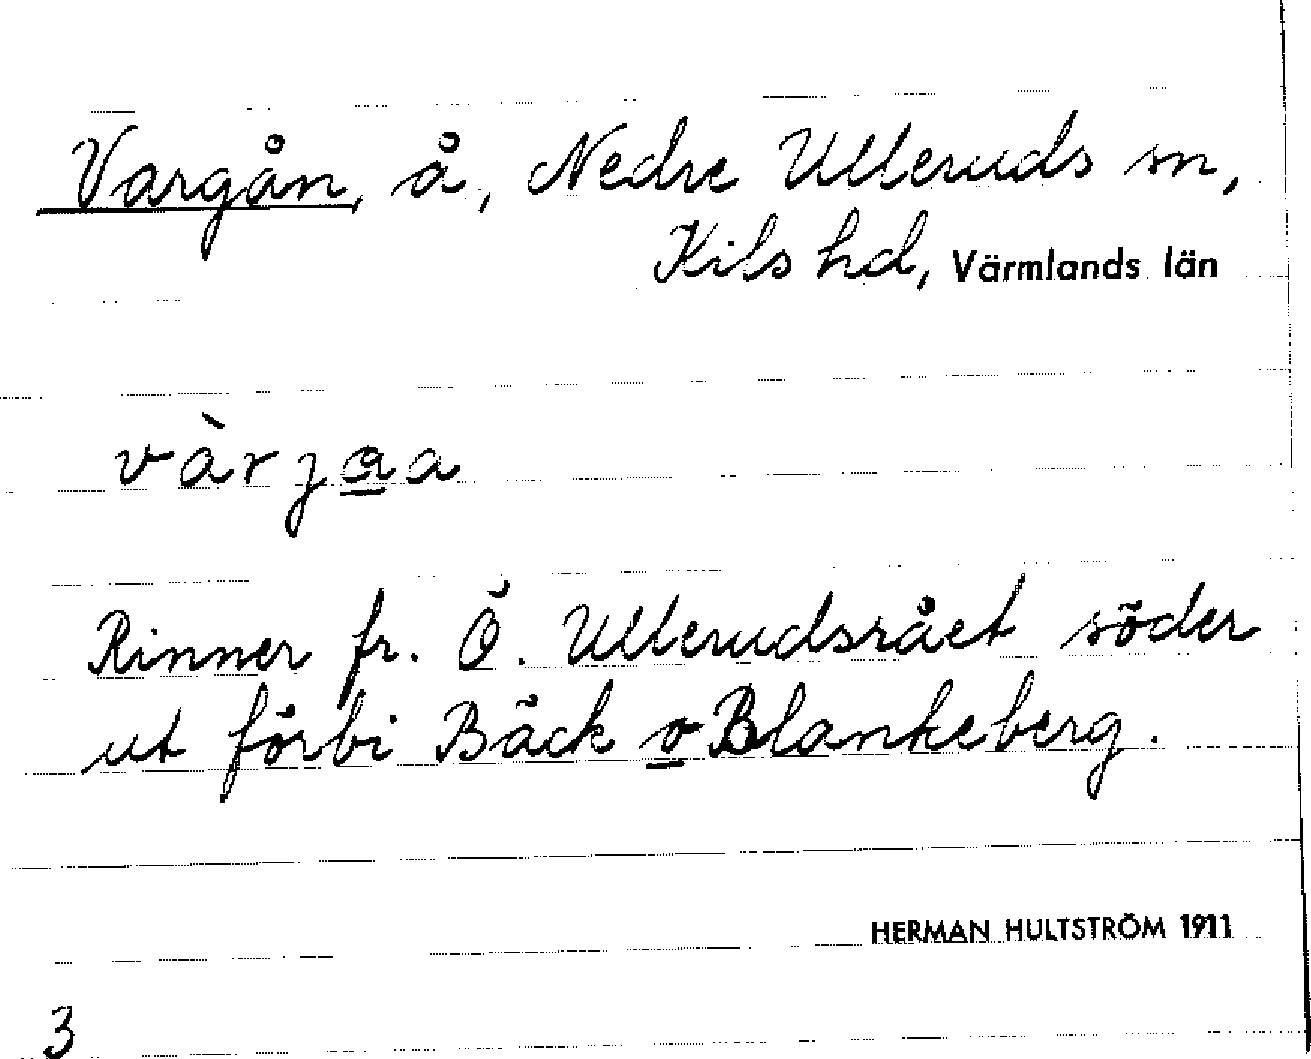 Vargån, å, Nedre Ulleruds sn,
Kils hd, Värmlands län
vàrja̲a
Rinner fr. Ö. Ullerudsrået söder
ut förbi Bäck o̲ Blankeberg.
HERMAN HULTSTRÖM 1911
3